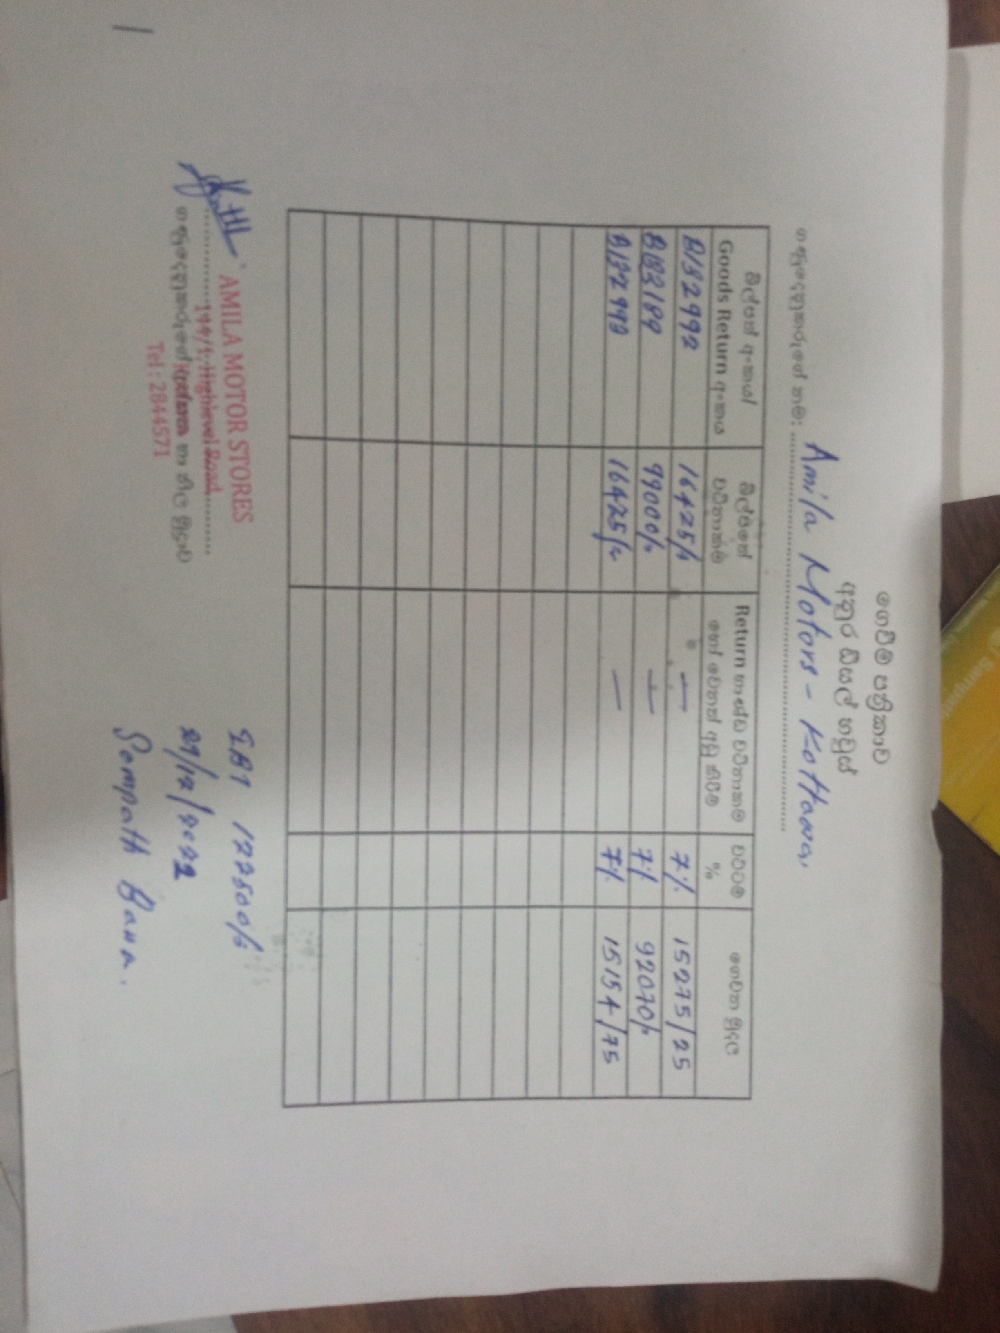 ගෙවීම් පත්‍රිකාව
අනුර ඩීසල් හවුස්
ගණුදෙනුකරුගේ නම: Amila Motors - Kottawa.
බිල්පත් අංකය/ Goods Return අංකය
බිල්පතේ වටිනාකම
Return භාණ්ඩ වටිනාකම හෝ වෙනත් අඩු කිරීම්
වට්ටම් %
ගෙවන මුදල
B132992 16425/- — 7% 15275/25
B133189 99000/- — 7% 92070/-
B132993 16425/- — 7% 15154/75
AMILA MOTOR STORES
144/1, Highlevel Road
ගණුදෙනුකරුගේ අත්සන හා නිල මුද්‍රාව
Tel : 2844571
122500/-
29/12/2022
Sampath Bank.